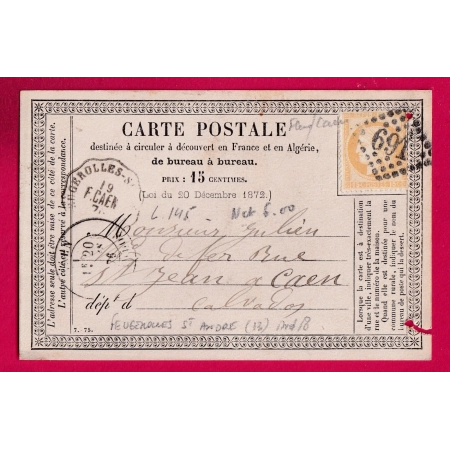 CARTE POSTALE
destinée à circuler à découvert en France et en Algérie,
de bureau à bureau.
PRIX : 15 CENTIMES.
(Loi du 20 Décembre 1872.)
L 145 Net 6.00
Monsieur Julien
Rue
St Jean à Caen
dépt d
Calvados
FEUGEROLLES ST ANDRE (13) ind 18
7. 75.
L'adresse seule doit être mise de ce côté de la carte.
L'autre côté est réservé à la correspondance.
Lorsque la carte est à destination
d'une ville, indiquer très-exactement la
rue et le numéro de la maison.
Quand elle est destinée pour une
commune rurale, indiquer le nom du
bureau de poste qui la dessert.
FEUGEROLLES-S
19
F.CAEN
20
691